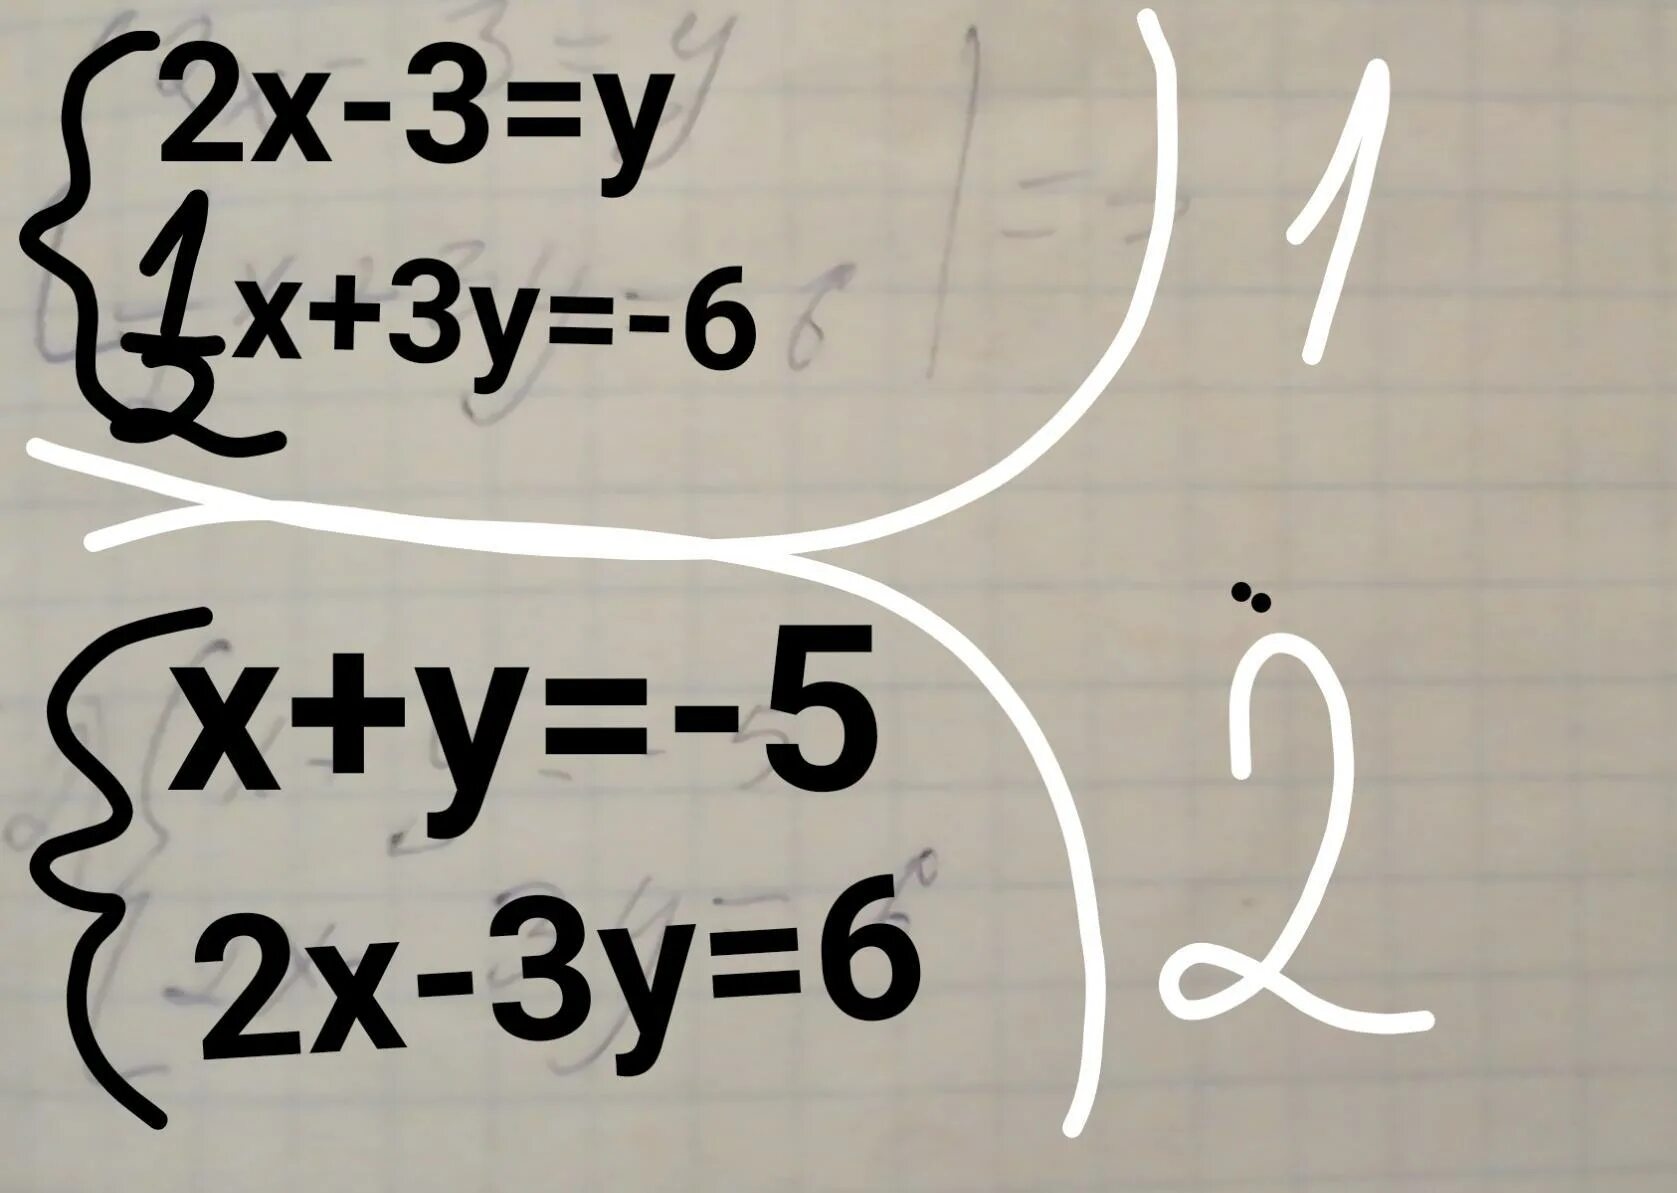 2x-3=y
1/2 x+3y=-6
1
x+y=-5
2x-3y=6
2